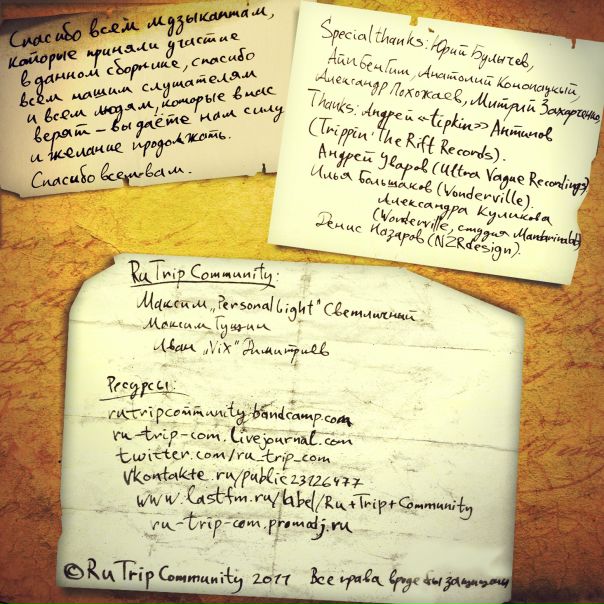 Спасибо всем музыкантам,
которые приняли участие
в данном сборнике, спасибо
всем нашим слушателям
и всем людям, которые в нас
верят – вы даёте нам силу
и желание продолжать.
Спасибо всем вам.
Special thanks: Юрий Булычев,
Айп Бен Гим, Анатолий Конопацкий,
Александр Похожаев, Митрий Захарченко,
Thanks: Андрей «tipkin» Антипов
(Trippin' The Rift Records).
Андрей Уваров (Ultra Vague Recordings)
Илья Большаков (Wonderville).
Александра Куликова
(Wonderville, студия Mandarinabit)
Денис Назаров (NZRdesign).
RuTrip Community:
Максим „Personal Light" Светличный
Максим Гущин
Иван „Vix" Димитриев
Ресурсы:
rutripcommunity.bandcamp.com
ru-trip-com.livejournal.com
twitter.com/ru_trip_com
vkontakte.ru/public23126477
www.lastfm.ru/label/Ru+Trip+Community
ru-trip-com.promodj.ru
©RuTripCommunity 2011 Все права вроде бы защищены